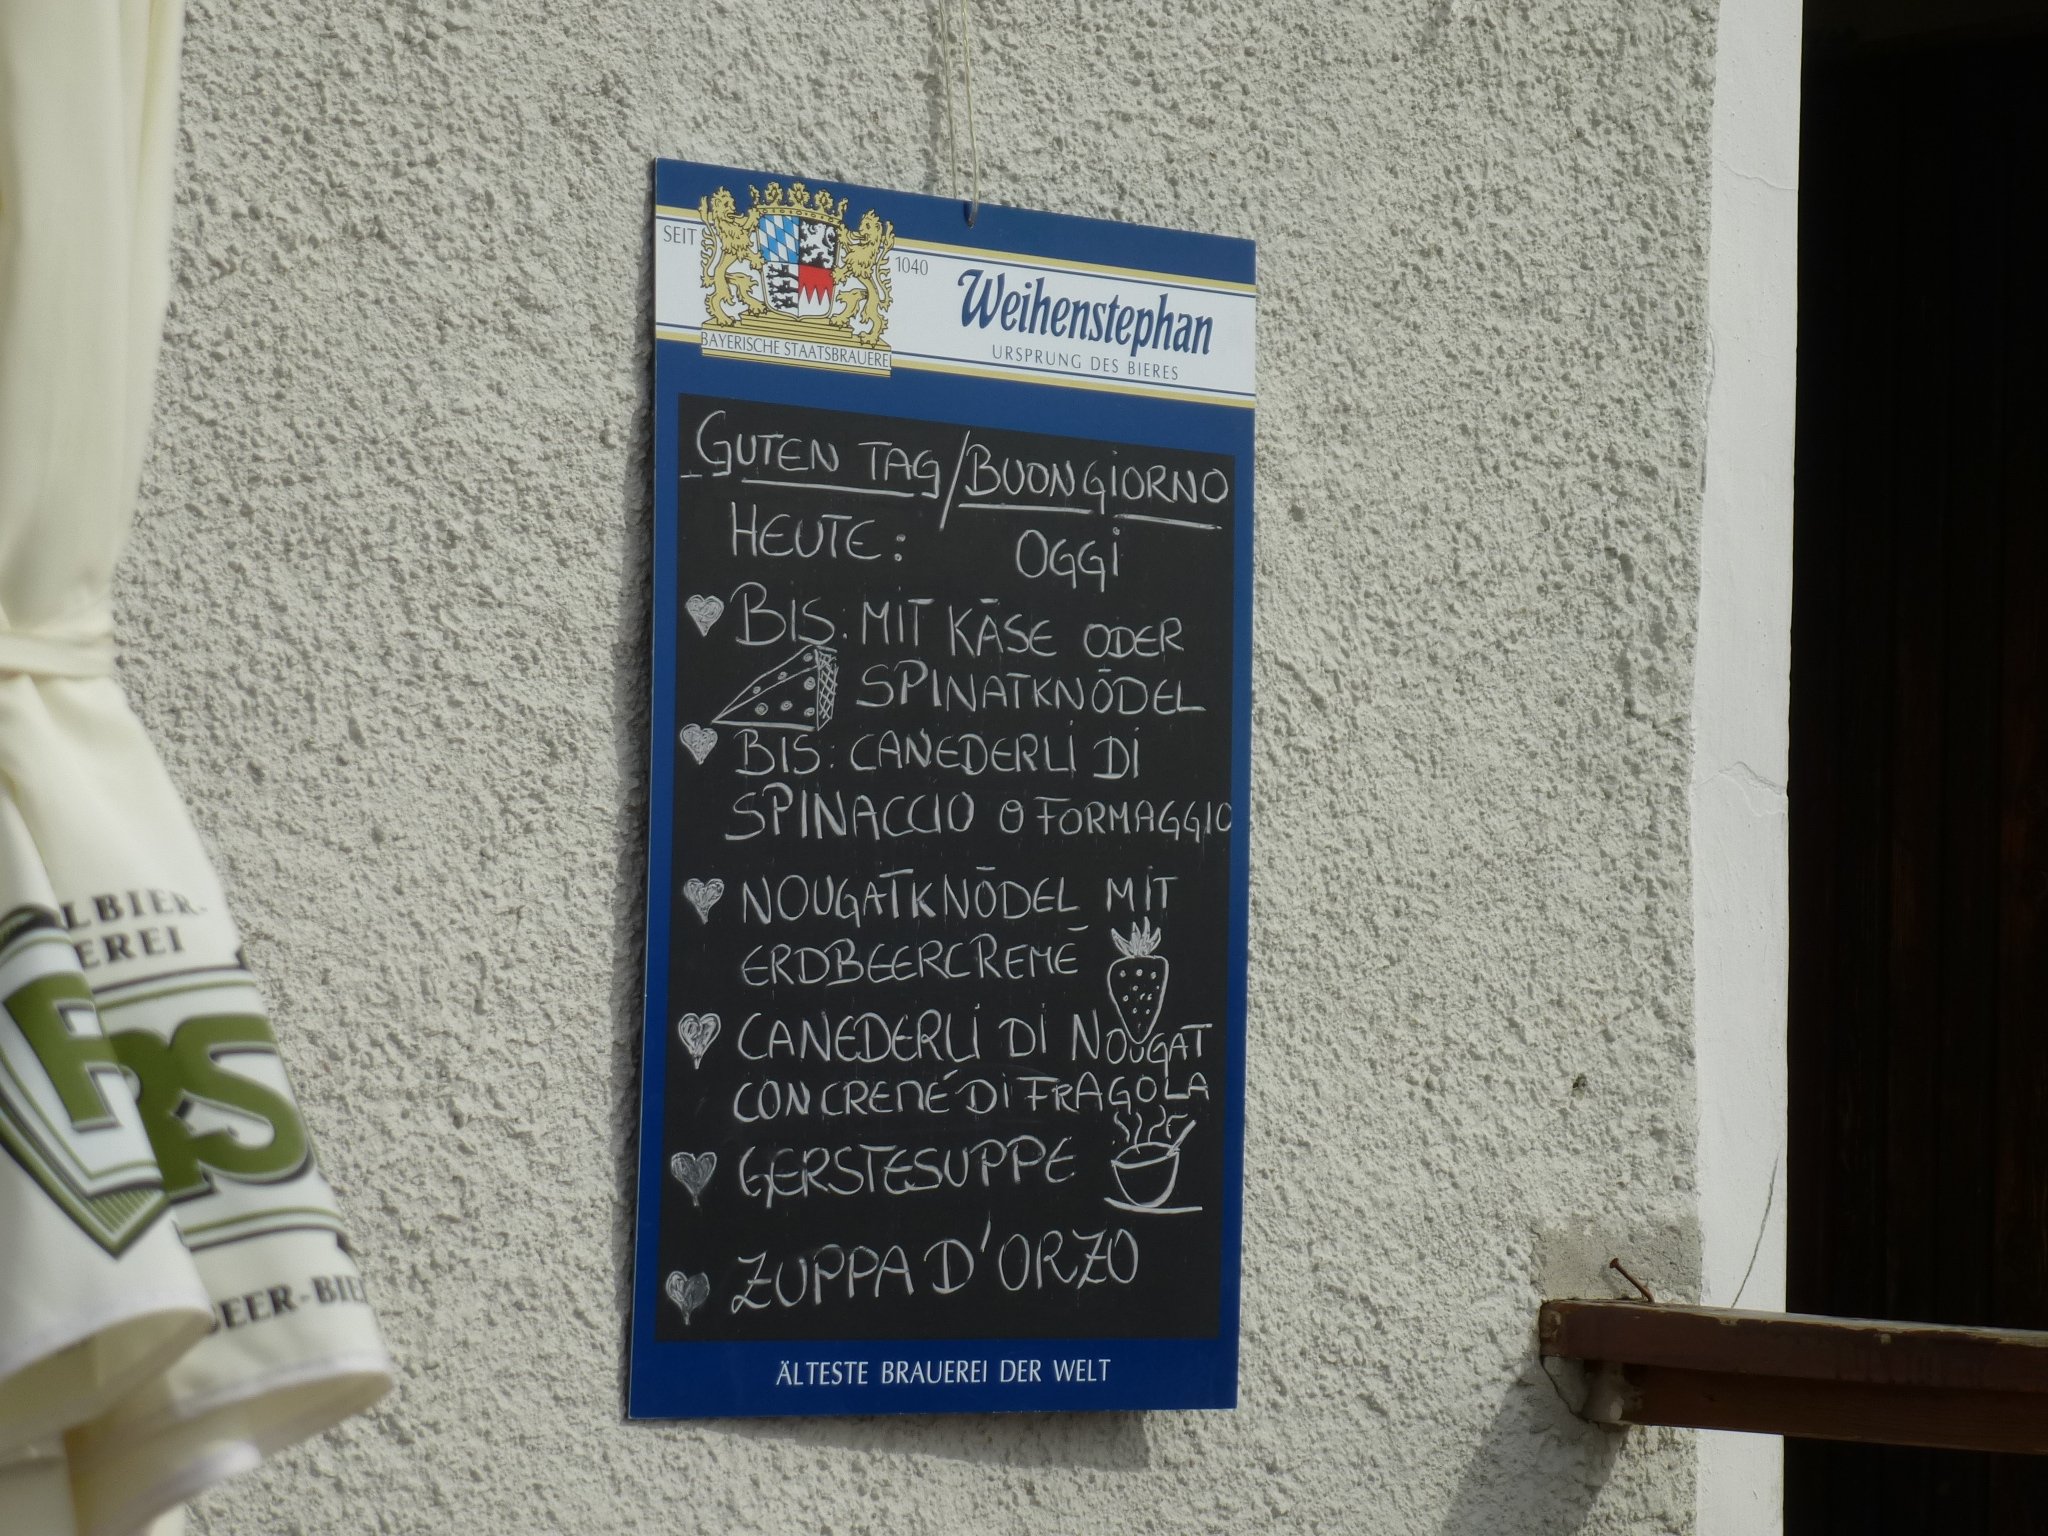 SEIT 1040
Weihenstephan
URSPRUNG DES BIERES
BAYERISCHE STAATSBRAUEREI
GUTEN TAG/BUONGIORNO
HEUTE: OGGI
BIS: MIT KÄSE ODER
SPINATKNÖDEL
BIS: CANEDERLI DI
SPINACCIO O FORMAGGIO
NOUGATKNÖDEL MIT
ERDBEERCREMÉ
CANEDERLI DI NOUGAT
CON CREMÉ DI FRAGOLA
GERSTESUPPE
ZUPPA D'ORZO
ÄLTESTE BRAUEREI DER WELT